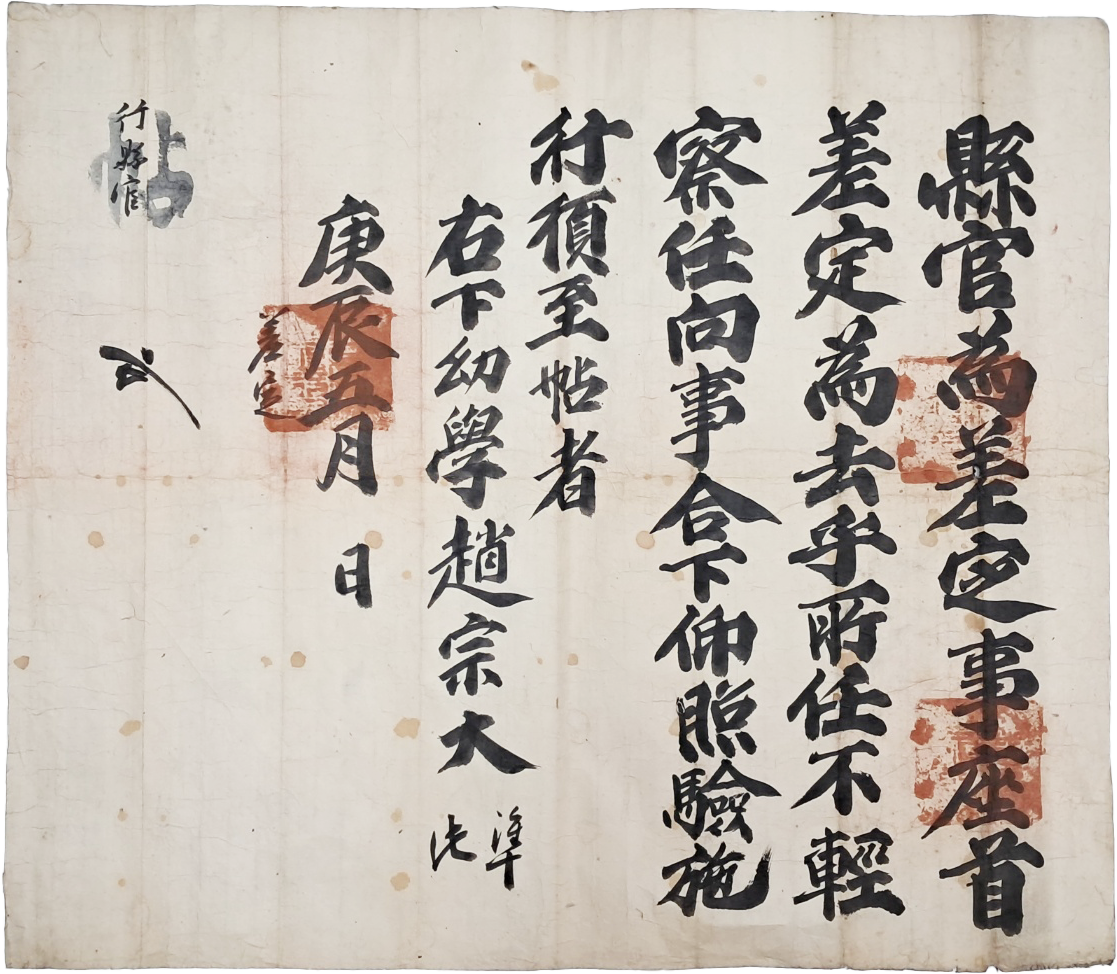 縣官為差定事座首
差定為去乎所任不輕
察任向事合下仰照驗施
行須至帖者
右下幼學趙宗大
準
此
庚辰五月
日
差定
帖
行縣官